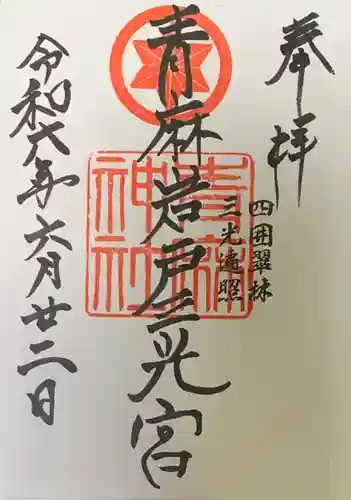 奉拝
四囲翠林
三光遠照
青麻岩戸三光宮
青麻神社
令和六年六月廿二日